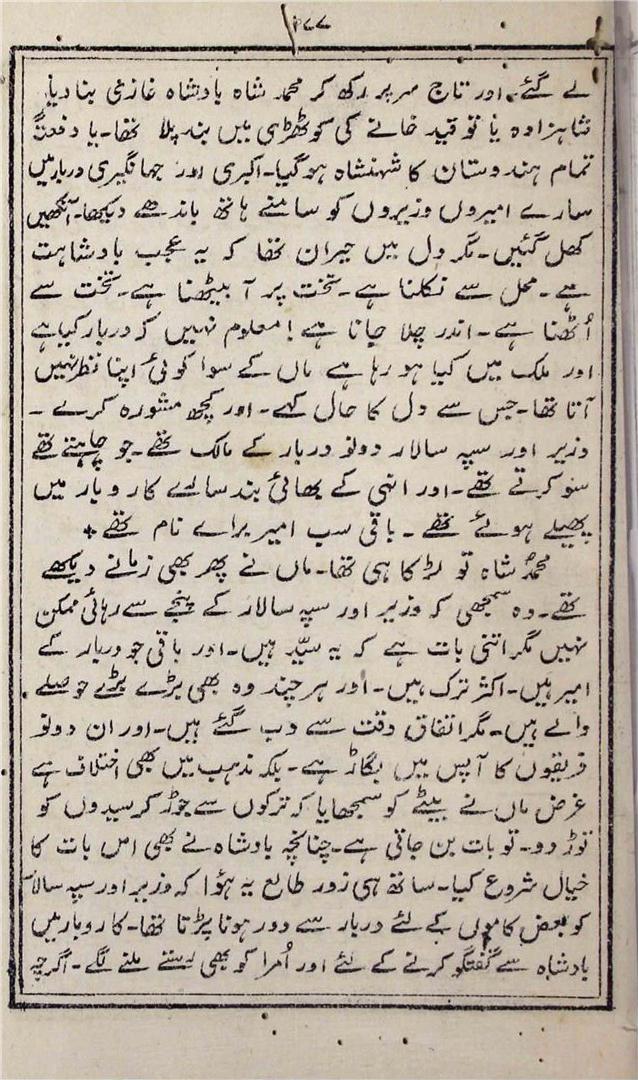 ۲۷۷
لے گئے۔ اور تاج سر پر رکھ کر محمد شاہ بادشاہ غازی بنا دیا۔
شاہزادہ یا تو قید خانے کی کوٹھڑی میں بند پڑا تھا۔ یا دفعتہً
تمام ہندوستان کا شہنشاہ ہو گیا۔ اکبری اور جہانگیری دربار میں
سارے امیروں وزیروں کو سامنے ہاتھ باندھے دیکھا۔ آنکھیں
کھل گئیں۔ مگر دل میں حیران تھا کہ یہ عجب بادشاہت
ہے۔ محل سے نکلتا ہے۔ تخت پر آ بیٹھتا ہے۔ تخت سے
اُٹھتا ہے۔ اندر چلا جاتا ہے! معلوم نہیں کہ دربار کیا ہے
اور ملک میں کیا ہو رہا ہے ماں کے سوا کوئی اپنا نظر نہیں
آتا تھا۔ جس سے دل کا حال کہے۔ اور کچھ مشورہ کرے۔
وزیر اور سپہ سالار دونو دربار کے مالک تھے۔ جو چاہتے تھے
سو کرتے تھے۔ اور انہی کے بھائی بند سارے کاروبار میں
پھیلے ہوئے تھے۔ باقی سب امیر براے نام تھے +
محمد شاہ تو لڑکا ہی تھا۔ ماں نے پھر بھی زمانے دیکھے
تھے۔ وہ سمجھی کہ وزیر اور سپہ سالار کے پنجے سے رہائی ممکن
نہیں مگر اتنی بات ہے کہ یہ سیّد ہیں۔ اور باقی جو دربار کے
امیر ہیں۔ اکثر ترک ہیں۔ اور ہر چند وہ بھی بڑے بڑے حوصلے
والے ہیں۔ مگر اتفاق وقت سے دب گئے ہیں۔ اور ان دونو
فریقوں کا آپس میں بگاڑ ہے۔ بلکہ مذہب میں بھی اختلاف ہے
غرض ماں نے بیٹے کو سمجھایا کہ ترکوں سے جوڑ کر سیدوں کو
توڑ دو۔ تو بات بن جاتی ہے۔ چنانچہ بادشاہ نے بھی اس بات کا
خیال شروع کیا۔ ساتھ ہی زور طالع یہ ہؤا کہ وزیر اور سپہ سالار
کو بعض کاموں کے لئے دربار سے دور ہونا پڑتا تھا۔ کاروبار میں
بادشاہ سے گفتگو کرنے کے لئے اور اُمرا کو بھی رستے ملنے لگے۔ اگرچہ